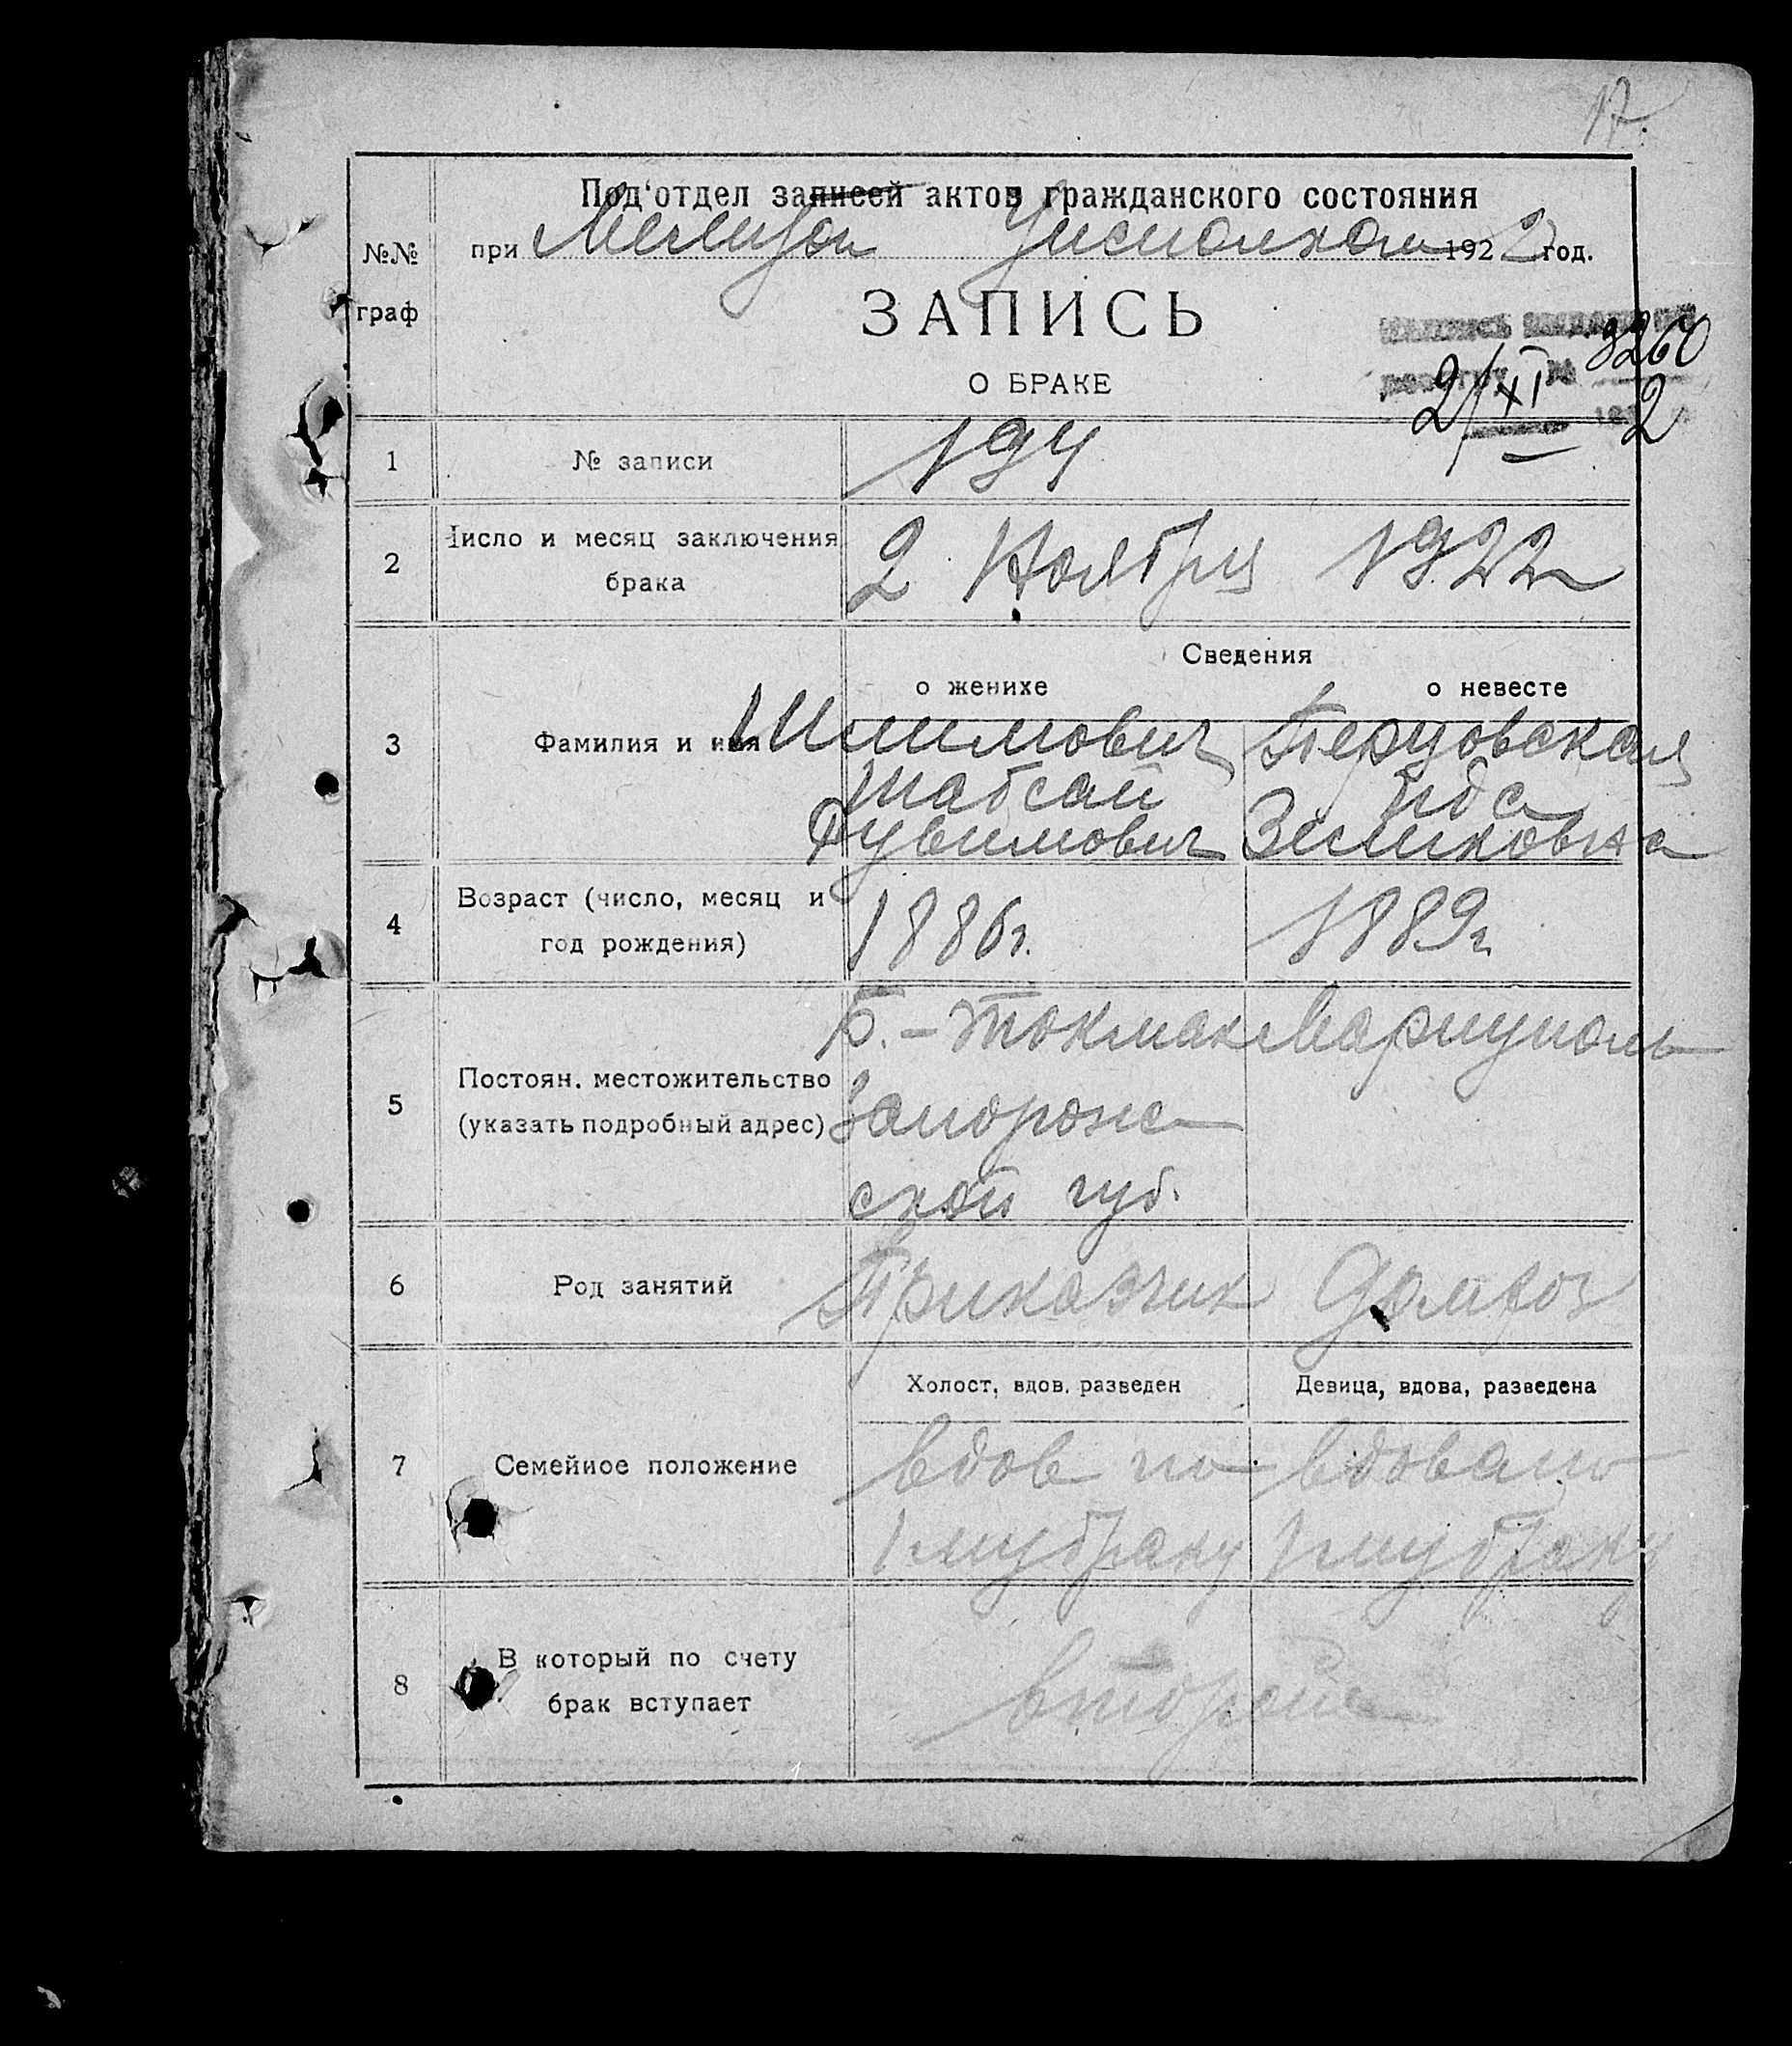 17.
Под'отдел записей актов гражданского состояния
№№ при 1922 год.
граф
ЗАПИСЬ
3260
О БРАКЕ
2/XI 2
1 № записи 194
2 Число и месяц заключения брака 2 Ноября 1922
Сведения
о женихе о невесте
3 Фамилия и имя Шимович Перцовская
Шабсай Ида
Рувимович Зеликовна
4 Возраст (число, месяц и
год рождения) 1886г. 1889г.
Б.-Токмак Мариуполь
5 Постоян. местожительство
(указать подробный адрес) Запорож
ской губ.
6 Род занятий Приказчик Домхоз
Холост, вдов, разведен Девица, вдова, разведена
7 Семейное положение вдов по вдова по
1му браку 1му браку
8 В который по счету
брак вступает второй